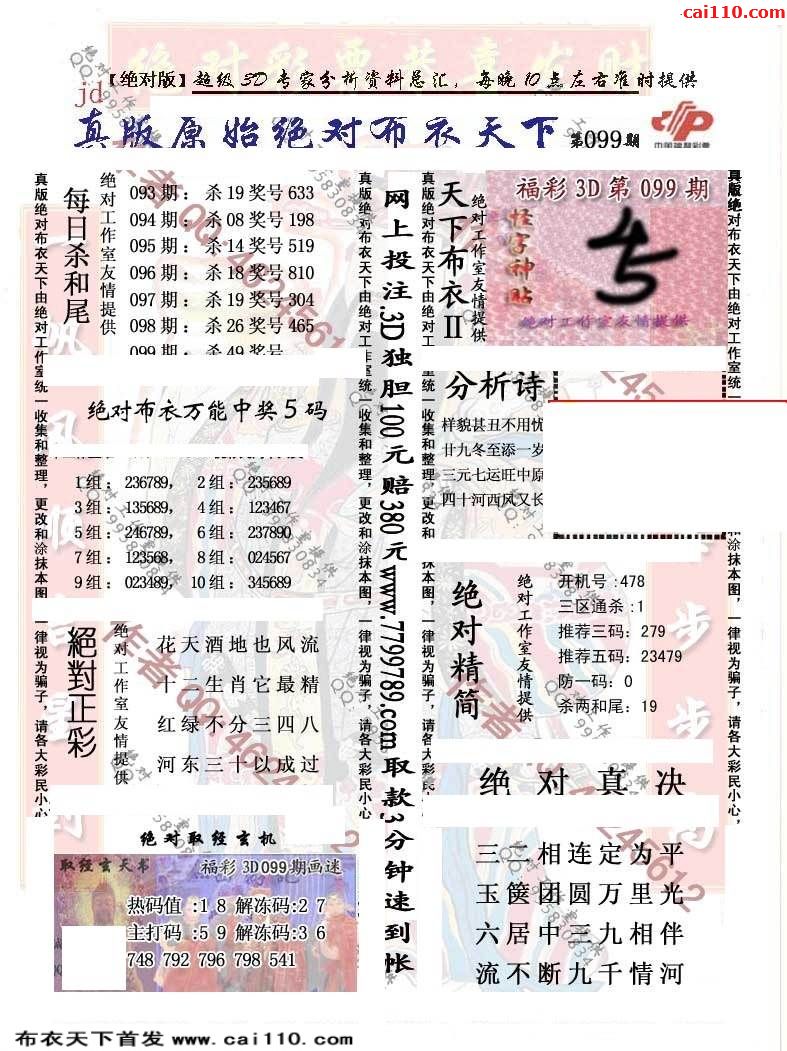 cai110.com
【绝对版】超级3D专家分析资料总汇，每晚10点左右准时提供
jd
真版原始绝对布衣天下 第099期
中国福利彩票
真版绝对布衣天下由绝对工作室统一收集和整理，更改和涂抹本图，一律视为骗子，请各大彩民小心，
每日杀和尾
绝对工作室友情提供
093期：杀19奖号633
094期：杀08奖号198
095期：杀14奖号519
096期：杀18奖号810
097期：杀19奖号304
098期：杀26奖号465
099期：杀49奖号
绝对布衣万能中奖5码
1组：236789，2组：235689
3组：135689，4组：123467
5组：246789，6组：237890
7组：123568，8组：024567
9组：023489，10组：345689
絕對正彩
绝对工作室友情提供
花天酒地也风流
十二生肖它最精
红绿不分三四八
河东三十以成过
绝对取经玄机
取经玄天书 福彩3D099期画迷
热码值:18解冻码:27
主打码:59解冻码:36
748 792 796 798 541
真版绝对布衣天下由绝对工作室统一收集和整理，更改和涂抹本图，一律视为骗子，请各大彩民小心，
网上投注.3D独胆100元赔380元www.7799789.com取款3分钟速到帐
真版绝对布衣天下由绝对工作室统一收集和整理，更改和涂抹本图，一律视为骗子，请各大彩民小心，
天下布衣II
绝对工作室友情提供
福彩3D第099期
怪字神贴
绝对工作室友情提供
分析诗
样貌甚丑不用忧
廿九冬至添一岁
三元七运旺中原
四十河西风又长
绝对精简
绝对工作室友情提供
开机号:478
三区通杀:1
推荐三码：279
推荐五码：23479
防一码：0
杀两和尾：19
绝对真决
三二相连定为平
玉箧团圆万里光
六居中三九相伴
流不断九千情河
真版绝对布衣天下由绝对工作室统一收集和整理，更改和涂抹本图，一律视为骗子，请各大彩民小心，
布衣天下首发 www.cai110.com